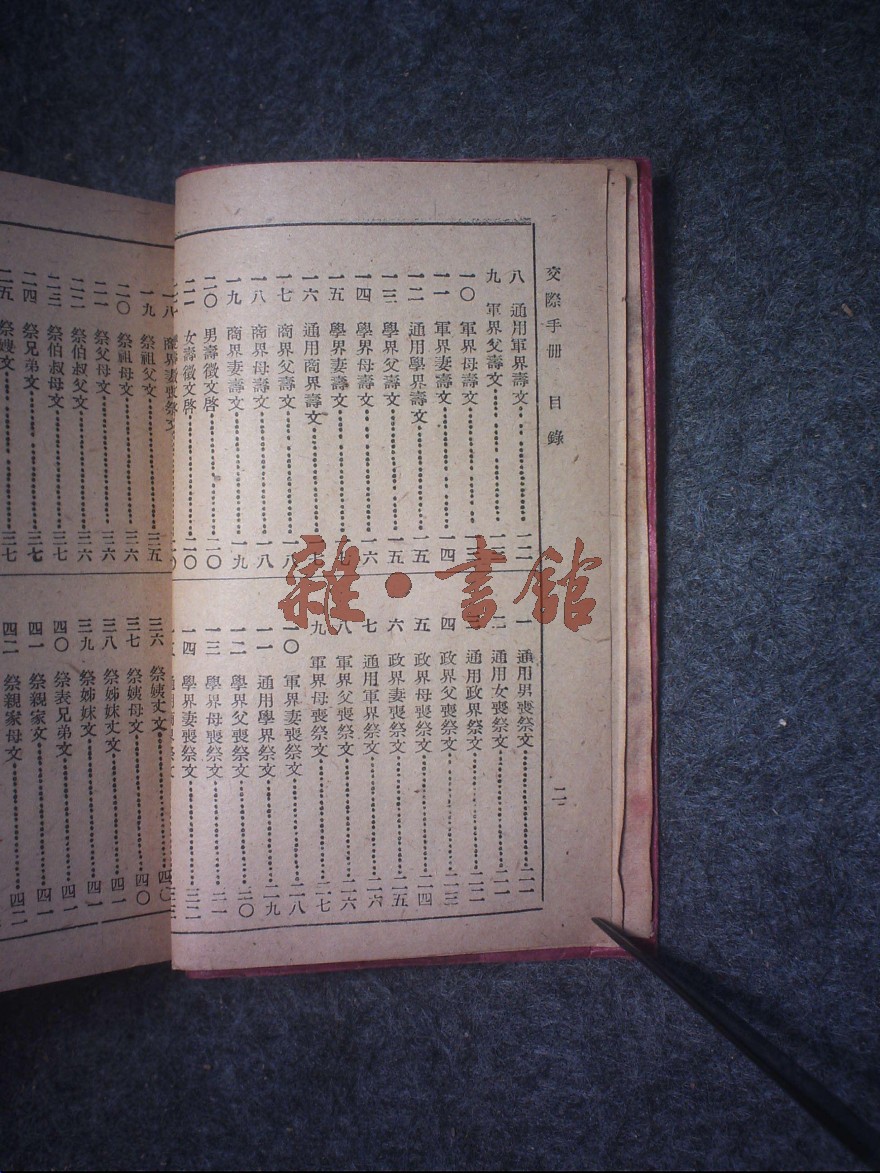 交際手冊 目錄
二
八 通用軍界壽文 一二
九 軍界父壽文
一〇 軍界母壽文 一三
一一 軍界妻壽文 一四
一二 通用學界壽文 一五
一三 學界父壽文 一五
一四 學界母壽文 一六
一五 學界妻壽文
一六 通用商界壽文
一七 商界父壽文 一八
一八 商界母壽文 一八
一九 商界妻壽文 一九
二〇 男壽徵文啓 二〇
二一 女壽徵文啓 二〇
一 通用男喪祭文 二一
二 通用女喪祭文
三 通用政界祭文 二二
四 政界父喪祭文 二三
五 政界母喪祭文 二四
六 政界妻喪祭文 二五
七 通用軍界祭文 二六
八 軍界父喪祭文 二六
九 軍界母喪祭文 二七
一〇 軍界妻喪祭文 二八
一一 通用學界祭文 二九
一二 學界父喪祭文
一三 學界母喪祭文
一四 學界妻喪祭文 三二
一八 商界妻喪祭文
一九 祭祖父文 三五
二〇 祭祖母文 三六
二一 祭父母文 三六
二二 祭伯叔父文 三六
二三 祭伯叔母文 三七
二四 祭兄弟文 三七
二五 祭嫂文 三七
三六 祭姨丈文 四〇
三七 祭姨母文 四〇
三八 祭姊妹丈文 四一
三九 祭姊妹文 四一
四〇 祭表兄弟文 四一
四一 祭親家文 四一
四二 祭親家母文 四二
雜·書館